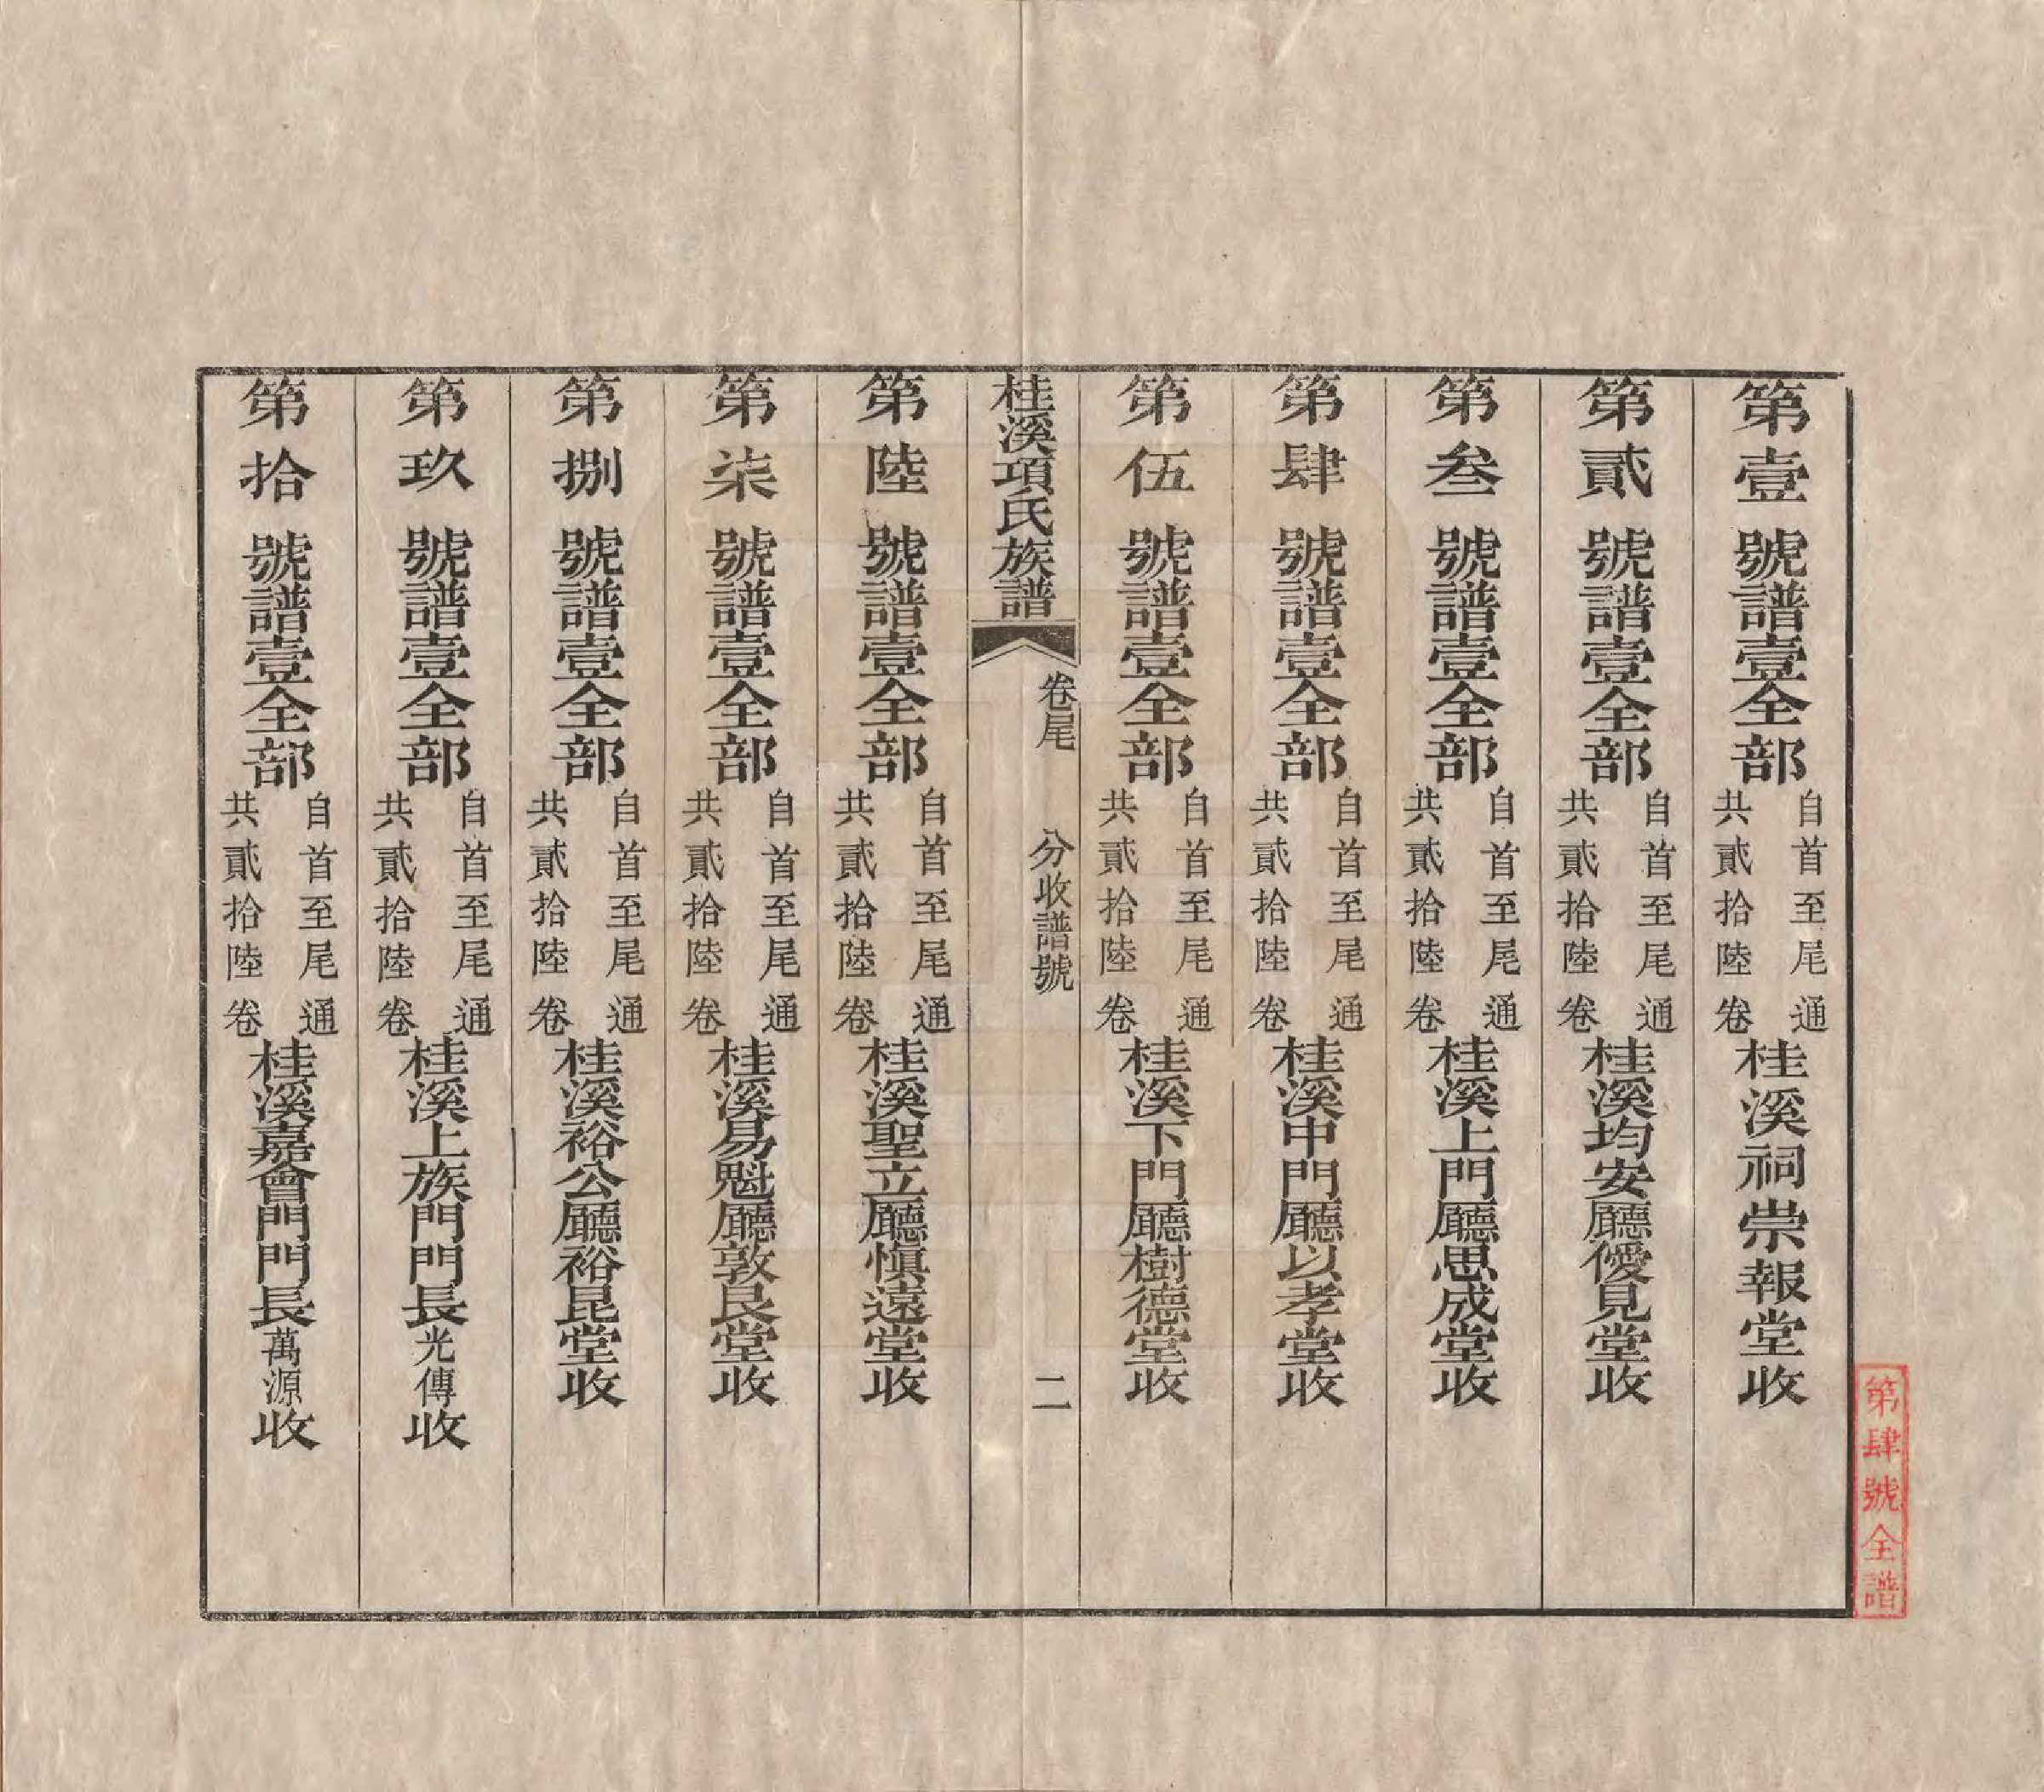 第壹號譜壹全部自首至尾通共貳拾陸卷桂溪祠崇報堂收
第貳號譜壹全部自首至尾通共貳拾陸卷桂溪均安廳優見堂收
第叁號譜壹全部自首至尾通共貳拾陸卷桂溪上門廳思成堂收
第肆號譜壹全部自首至尾通共貳拾陸卷桂溪中門廳以孝堂收
第伍號譜壹全部自首至尾通共貳拾陸卷桂溪下門廳樹德堂收
桂溪項氏族譜 卷尾 分收譜號 二
第陸號譜壹全部自首至尾通共貳拾陸卷桂溪聖立廳慎遠堂收
第柒號譜壹全部自首至尾通共貳拾陸卷桂溪易魁廳敦艮堂收
第捌號譜壹全部自首至尾通共貳拾陸卷桂溪裕公廳裕昆堂收
第玖號譜壹全部自首至尾通共貳拾陸卷桂溪上族門門長光傳收
第拾號譜壹全部自首至尾通共貳拾陸卷桂溪嘉會門門長萬源收
第肆號全譜